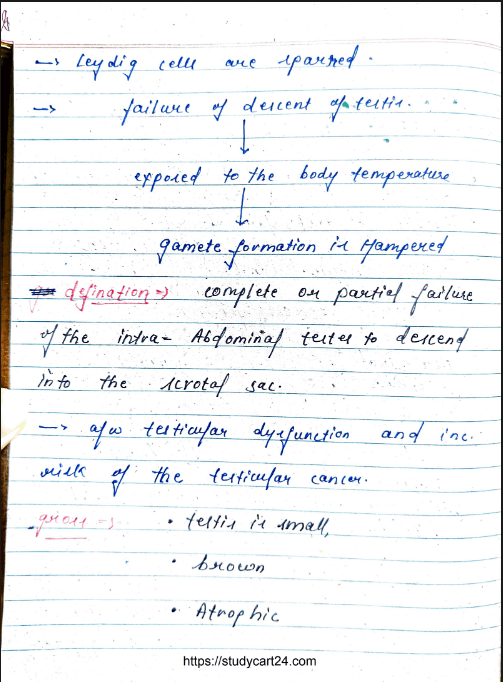 → leydig cells are sparred.
→ failure of descent of testis.
↓
exposed to the body temperature
↓
gamete formation is Hampered
defination → complete or partial failure
of the intra - Abdominal testes to descend
into the scrotal sac.
→ a/w testicular dysfunction and inc.
risk of the testicular cancer.
gross → • testis is small,
• brown
• Atrophic
https://studycart24.com